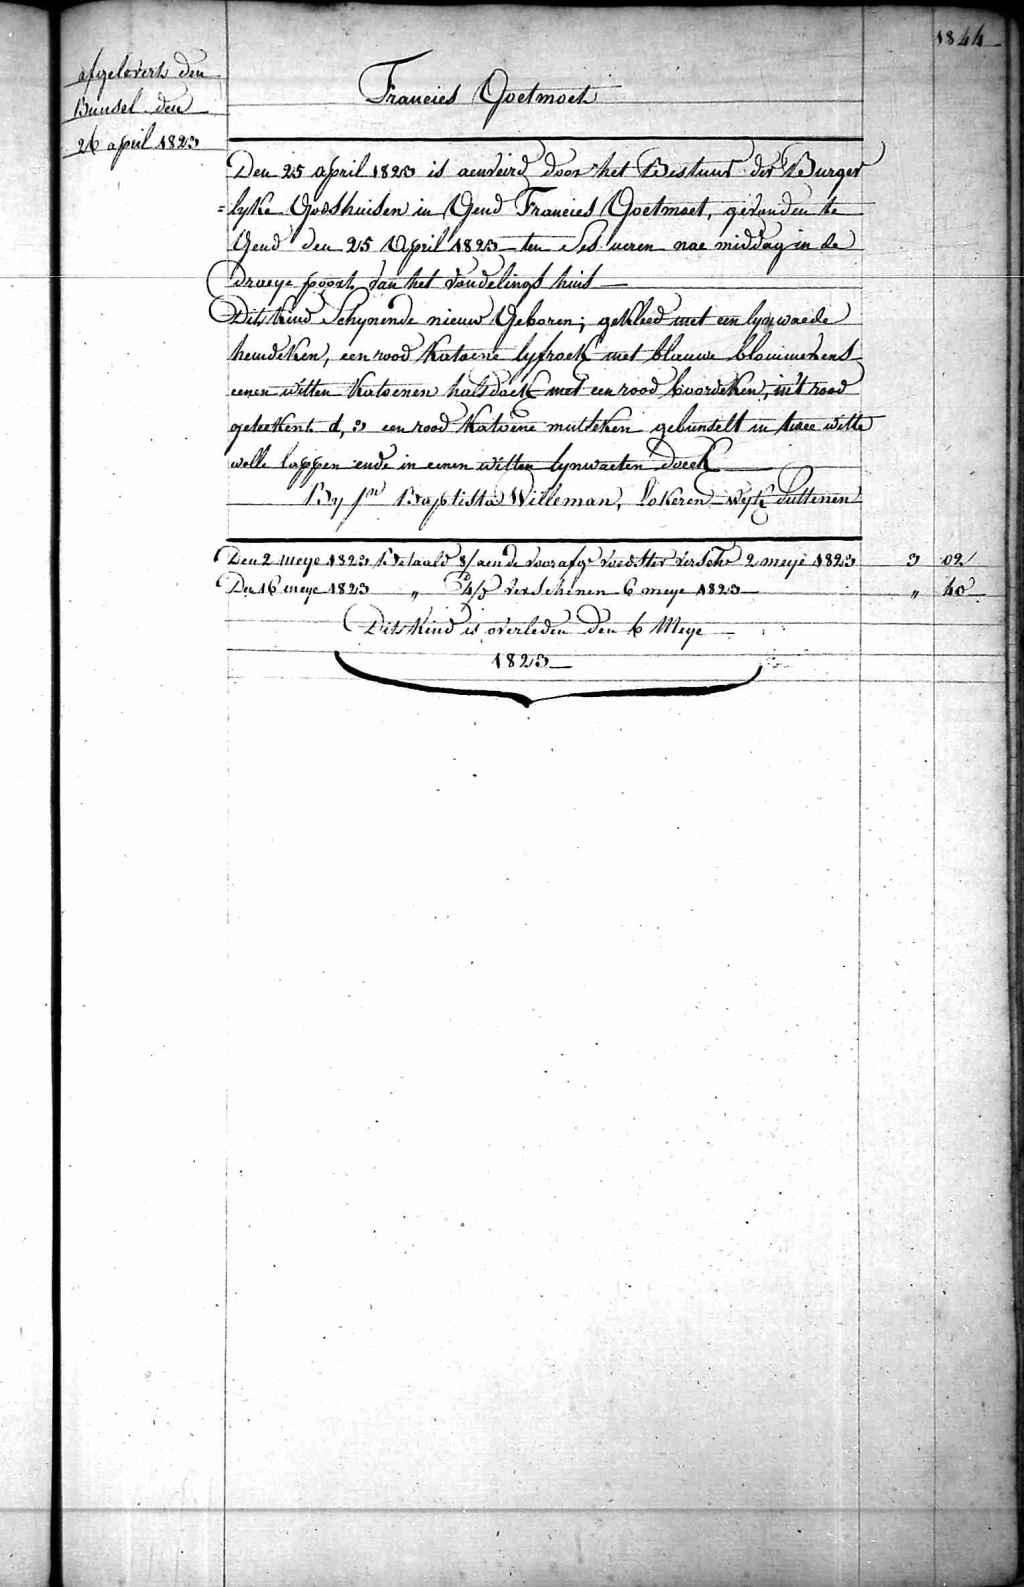 1844
afgeleverts den
Bunsel den
26 april 1823
Francies Goetmoet
Den 25 april 1823 is aenveird door het Bestuur der Burger
=lyke Godshuisen in Gend Francies Goetmoet, gevonden te
Gend den 25 April 1823 ten Ses ueren nae middag in de
draeye poort van het vondelings huis
Dits Kind Schynende nieuw Geboren; gekleed met een lynwaede
hemdeken, een rood Katoene lyfrock met blauwe blommekens
eenen witten Katoenen halsdoek met een rood boordeken, in't rood
geteekent d, 3 een rood Katoene mutseken gebunselt in twee witte
wolle lappen ende in eenen witten lynwaeten doeck
By Jn Baptista Willeman, Lokeren Wyk Puttenen
Den 2 meye 1823 Betaald 8/ aen de voorafge voedster versche 2 meye 1823 3 02
Den 16 meye 1823 „ 4/5 verschenen 6 meye 1823 „ 40
Dits Kind is overleden den 6 Meye
1823